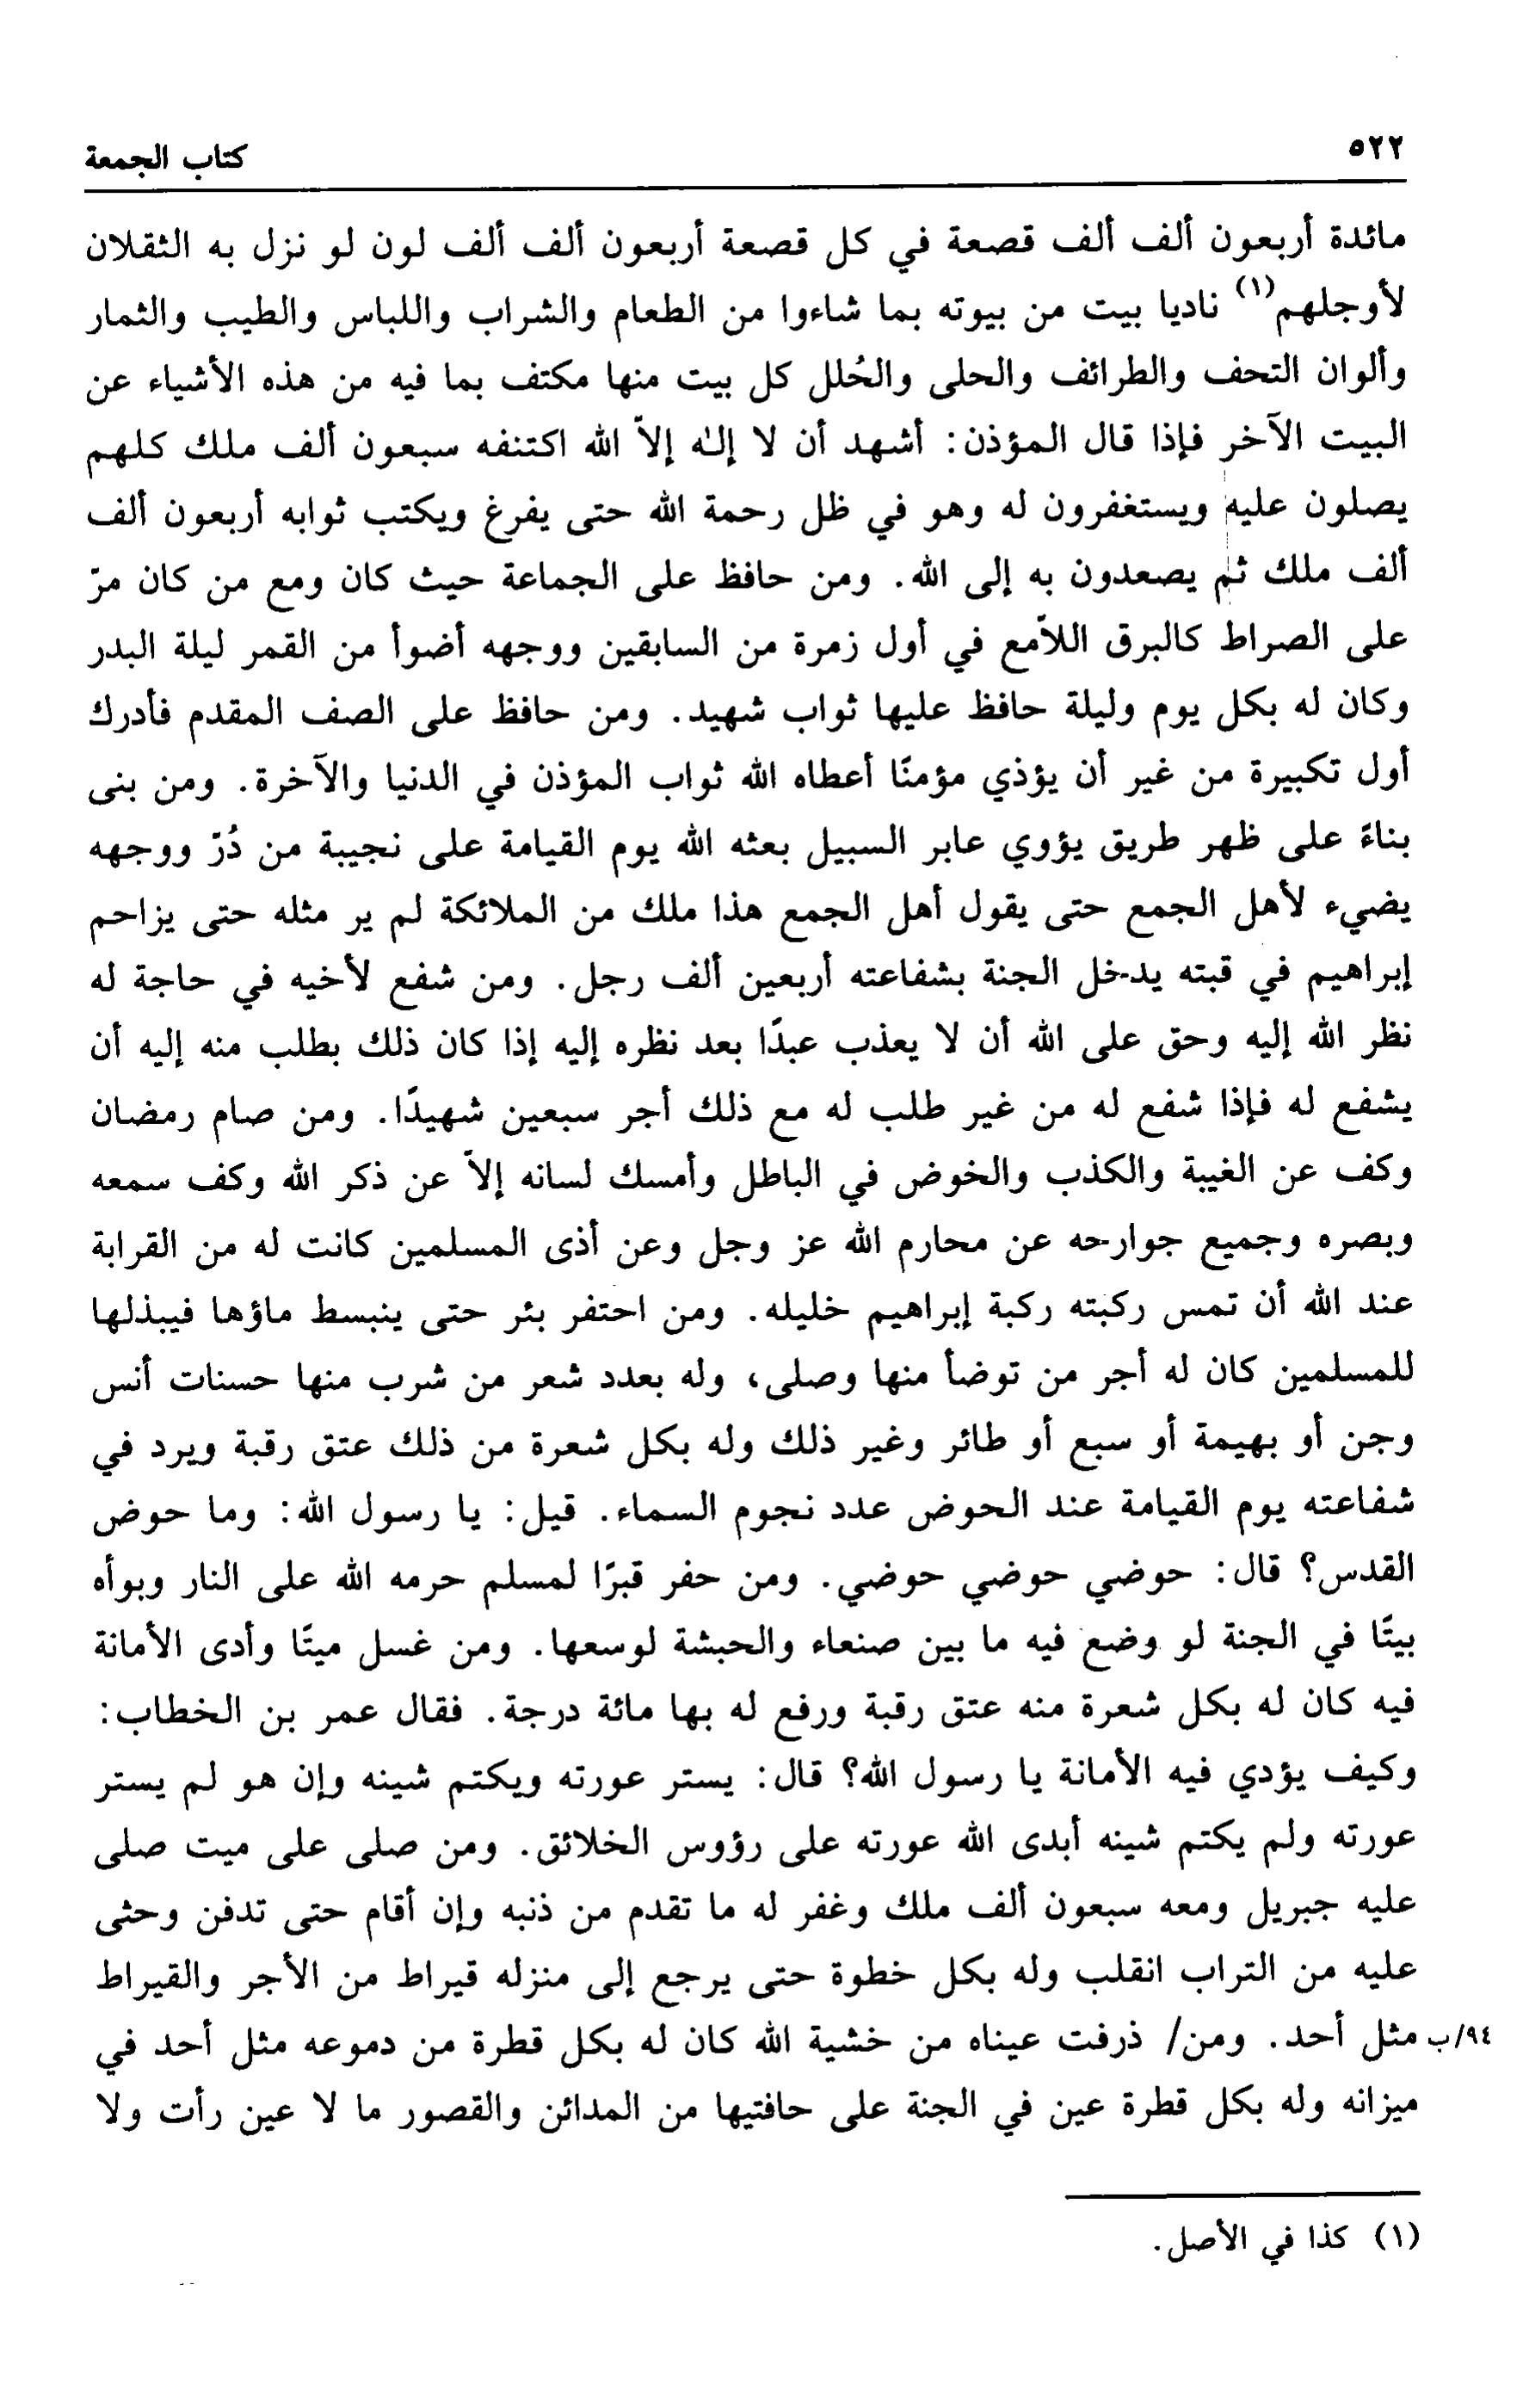 ٥٢٢
كتاب الجمعة
مائدة أربعون ألف ألف قصعة في كل قصعة أربعون ألف ألف لون لو نزل به الثقلان
لأوجلهم(١) ناديا بيت من بيوته بما شاءوا من الطعام والشراب واللباس والطيب والثمار
وألوان التحف والطرائف والحلى والحُلل كل بيت منها مكتف بما فيه من هذه الأشياء عن
البيت الآخر فإذا قال المؤذن: أشهد أن لا إلٰه إلاّ الله اكتنفه سبعون ألف ملك كلهم
يصلون عليه ويستغفرون له وهو في ظل رحمة الله حتى يفرغ ويكتب ثوابه أربعون ألف
ألف ملك ثم يصعدون به إلى الله. ومن حافظ على الجماعة حيث كان ومع من كان مرّ
على الصراط كالبرق اللاّمع في أول زمرة من السابقين ووجهه أضوأ من القمر ليلة البدر
وكان له بكل يوم وليلة حافظ عليها ثواب شهيد. ومن حافظ على الصف المقدم فأدرك
أول تكبيرة من غير أن يؤذي مؤمنًا أعطاه الله ثواب المؤذن في الدنيا والآخرة. ومن بنى
بناءً على ظهر طريق يؤوي عابر السبيل بعثه الله يوم القيامة على نجيبة من دُرّ ووجهه
يضيء لأهل الجمع حتى يقول أهل الجمع هذا ملك من الملائكة لم ير مثله حتى يزاحم
إبراهيم في قبته يدخل الجنة بشفاعته أربعين ألف رجل. ومن شفع لأخيه في حاجة له
نظر الله إليه وحق على الله أن لا يعذب عبدًا بعد نظره إليه إذا كان ذلك بطلب منه إليه أن
يشفع له فإذا شفع له من غير طلب له مع ذلك أجر سبعين شهيدًا. ومن صام رمضان
وكف عن الغيبة والكذب والخوض في الباطل وأمسك لسانه إلاّ عن ذكر الله وكف سمعه
وبصره وجميع جوارحه عن محارم الله عز وجل وعن أذى المسلمين كانت له من القرابة
عند الله أن تمس ركبته ركبة إبراهيم خليله. ومن احتفر بئر حتى ينبسط ماؤها فيبذلها
للمسلمين كان له أجر من توضأ منها وصلى، وله بعدد شعر من شرب منها حسنات أنس
وجن أو بهيمة أو سبع أو طائر وغير ذلك وله بكل شعرة من ذلك عتق رقبة ويرد في
شفاعته يوم القيامة عند الحوض عدد نجوم السماء. قيل: يا رسول الله: وما حوض
القدس؟ قال: حوضي حوضي حوضي. ومن حفر قبرًا لمسلم حرمه الله على النار وبوأه
بيتًا في الجنة لو وضع فيه ما بين صنعاء والحبشة لوسعها. ومن غسل ميتًا وأدى الأمانة
فيه كان له بكل شعرة منه عتق رقبة ورفع له بها مائة درجة. فقال عمر بن الخطاب:
وكيف يؤدي فيه الأمانة يا رسول الله؟ قال: يستر عورته ويكتم شينه وإن هو لم يستر
عورته ولم يكتم شينه أبدى الله عورته على رؤوس الخلائق. ومن صلى على ميت صلى
عليه جبريل ومعه سبعون ألف ملك وغفر له ما تقدم من ذنبه وإن أقام حتى تدفن وحثى
عليه من التراب انقلب وله بكل خطوة حتى يرجع إلى منزله قيراط من الأجر والقيراط
٩٤/ب مثل أحد. ومن/ ذرفت عيناه من خشية الله كان له بكل قطرة من دموعه مثل أحد في
ميزانه وله بكل قطرة عين في الجنة على حافتيها من المدائن والقصور ما لا عين رأت ولا
(١) كذا في الأصل.